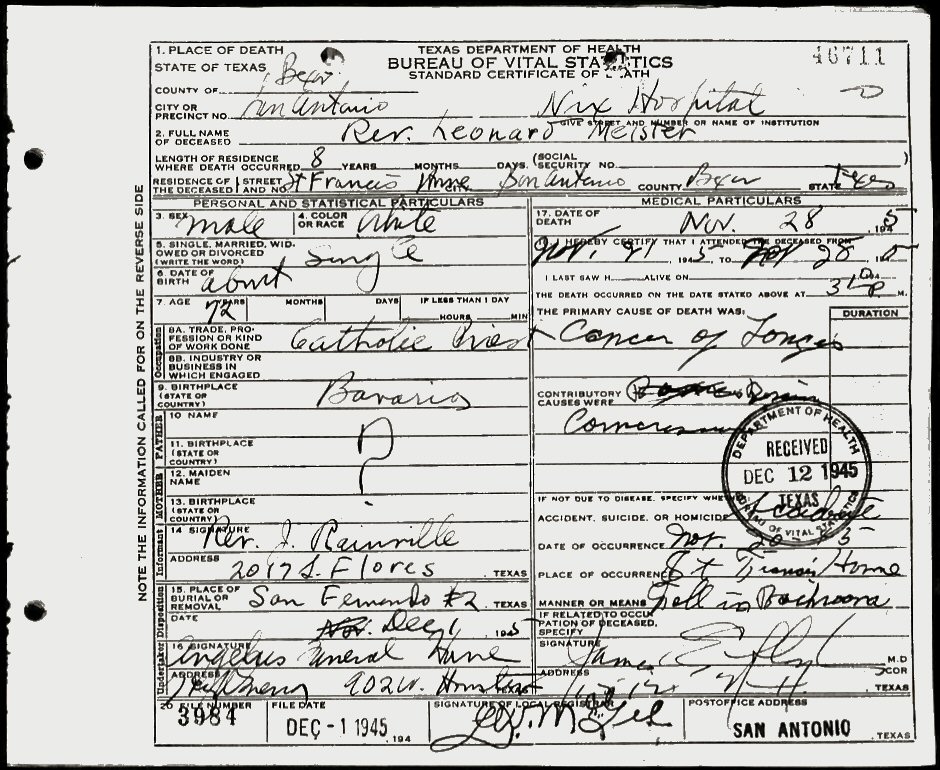 1. PLACE OF DEATH
STATE OF TEXAS
COUNTY OF Bexar
TEXAS DEPARTMENT OF HEALTH
BUREAU OF VITAL STATISTICS
STANDARD CERTIFICATE OF DEATH
46711
CITY OR PRECINCT NO. San Antonio
Nix Hospital
GIVE STREET AND NUMBER OR NAME OF INSTITUTION
2. FULL NAME OF DECEASED Rev. Leonard Meister
LENGTH OF RESIDENCE WHERE DEATH OCCURRED 8 YEARS MONTHS DAYS. (SOCIAL SECURITY NO.
RESIDENCE OF THE DECEASED STREET AND NO. St Francis Home San Antonio COUNTY Bexar STATE Texas
PERSONAL AND STATISTICAL PARTICULARS
3. SEX Male 4. COLOR OR RACE White
5. SINGLE, MARRIED, WIDOWED OR DIVORCED (WRITE THE WORD) Single
6. DATE OF BIRTH about
7. AGE 72 YEARS MONTHS DAYS IF LESS THAN 1 DAY HOURS MIN
Occupation
8A. TRADE, PROFESSION OR KIND OF WORK DONE Catholic Priest
8B. INDUSTRY OR BUSINESS IN WHICH ENGAGED
9. BIRTHPLACE (STATE OR COUNTRY) Bavaria
FATHER
10 NAME ?
11. BIRTHPLACE (STATE OR COUNTRY)
MOTHER
12. MAIDEN NAME
13. BIRTHPLACE (STATE OR COUNTRY)
Informant
14 SIGNATURE Rev. J. Rainville
ADDRESS 2017 S. Flores , TEXAS
Disposition
15. PLACE OF BURIAL OR REMOVAL San Fernando #2 , TEXAS
DATE Nov. Dec 1, 1945
Undertaker
16 SIGNATURE Angelus Funeral Home
ADDRESS 902 W. Houston
MEDICAL PARTICULARS
17. DATE OF DEATH Nov. 28 1945
I HEREBY CERTIFY THAT I ATTENDED THE DECEASED FROM
Nov. 21 1945 TO Nov 28 1945
I LAST SAW H ALIVE ON 194
THE DEATH OCCURRED ON THE DATE STATED ABOVE AT P M.
THE PRIMARY CAUSE OF DEATH WAS: DURATION
Cancer of
CONTRIBUTORY CAUSES WERE
DEPARTMENT OF HEALTH
RECEIVED
DEC 12 1945
TEXAS
BUREAU OF VITAL STATISTICS
IF NOT DUE TO DISEASE, SPECIFY WHE
ACCIDENT, SUICIDE, OR HOMICIDE Accident
DATE OF OCCURRENCE Nov.
PLACE OF OCCURRENCE St Francis Home
MANNER OR MEANS Fell in
IF RELATED TO OCCUPATION OF DECEASED, SPECIFY
SIGNATURE James E M.D
ADDRESS , TEXAS
20 FILE NUMBER
3984
FILE DATE
DEC -1 1945 , 194
SIGNATURE OF LOCAL REGISTRAR
POSTOFFICE ADDRESS
SAN ANTONIO , TEXAS
NOTE THE INFORMATION CALLED FOR ON THE REVERSE SIDE